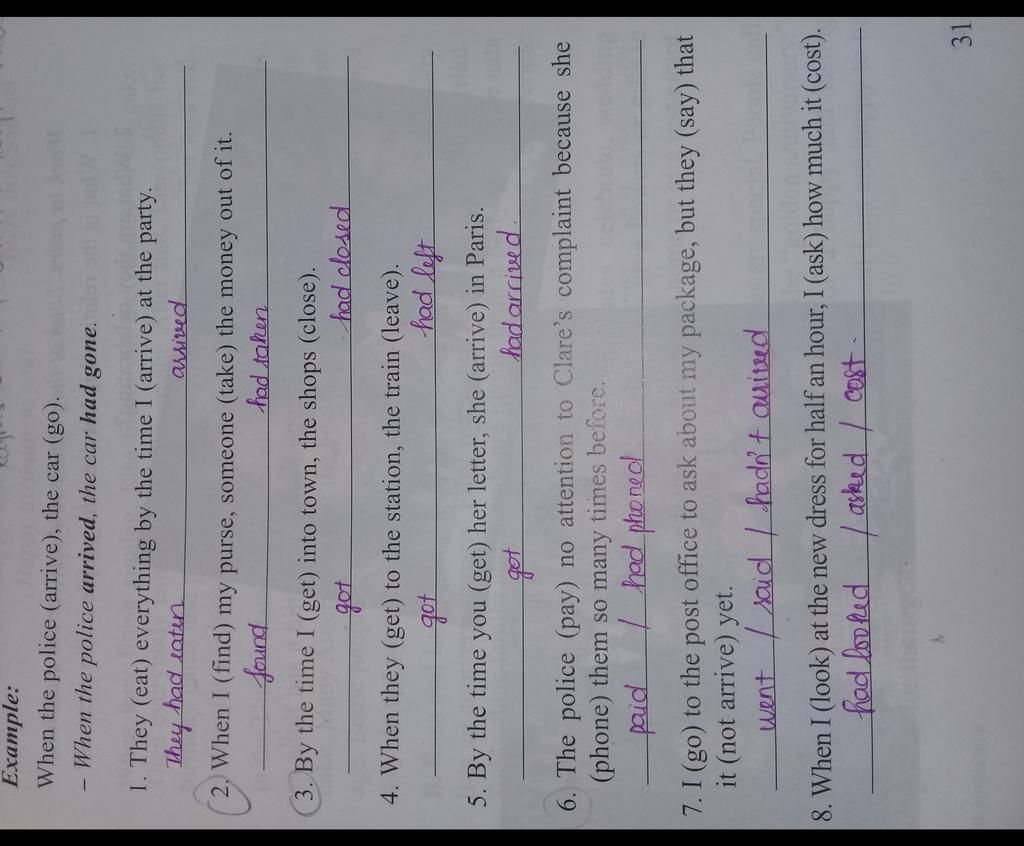 Example:
When the police (arrive), the car (go).
– When the police arrived, the car had gone.
1. They (eat) everything by the time I (arrive) at the party.
They had eaten arrived
2. When I (find) my purse, someone (take) the money out of it.
found had taken
3. By the time I (get) into town, the shops (close).
got had closed
4. When they (get) to the station, the train (leave).
got had left
5. By the time you (get) her letter, she (arrive) in Paris.
got had arrived.
6. The police (pay) no attention to Clare's complaint because she
(phone) them so many times before.
paid / had phoned
7. I (go) to the post office to ask about my package, but they (say) that
it (not arrive) yet.
went / said / hadn't arrived
8. When I (look) at the new dress for half an hour, I (ask) how much it (cost).
had looked / asked / cost.
31